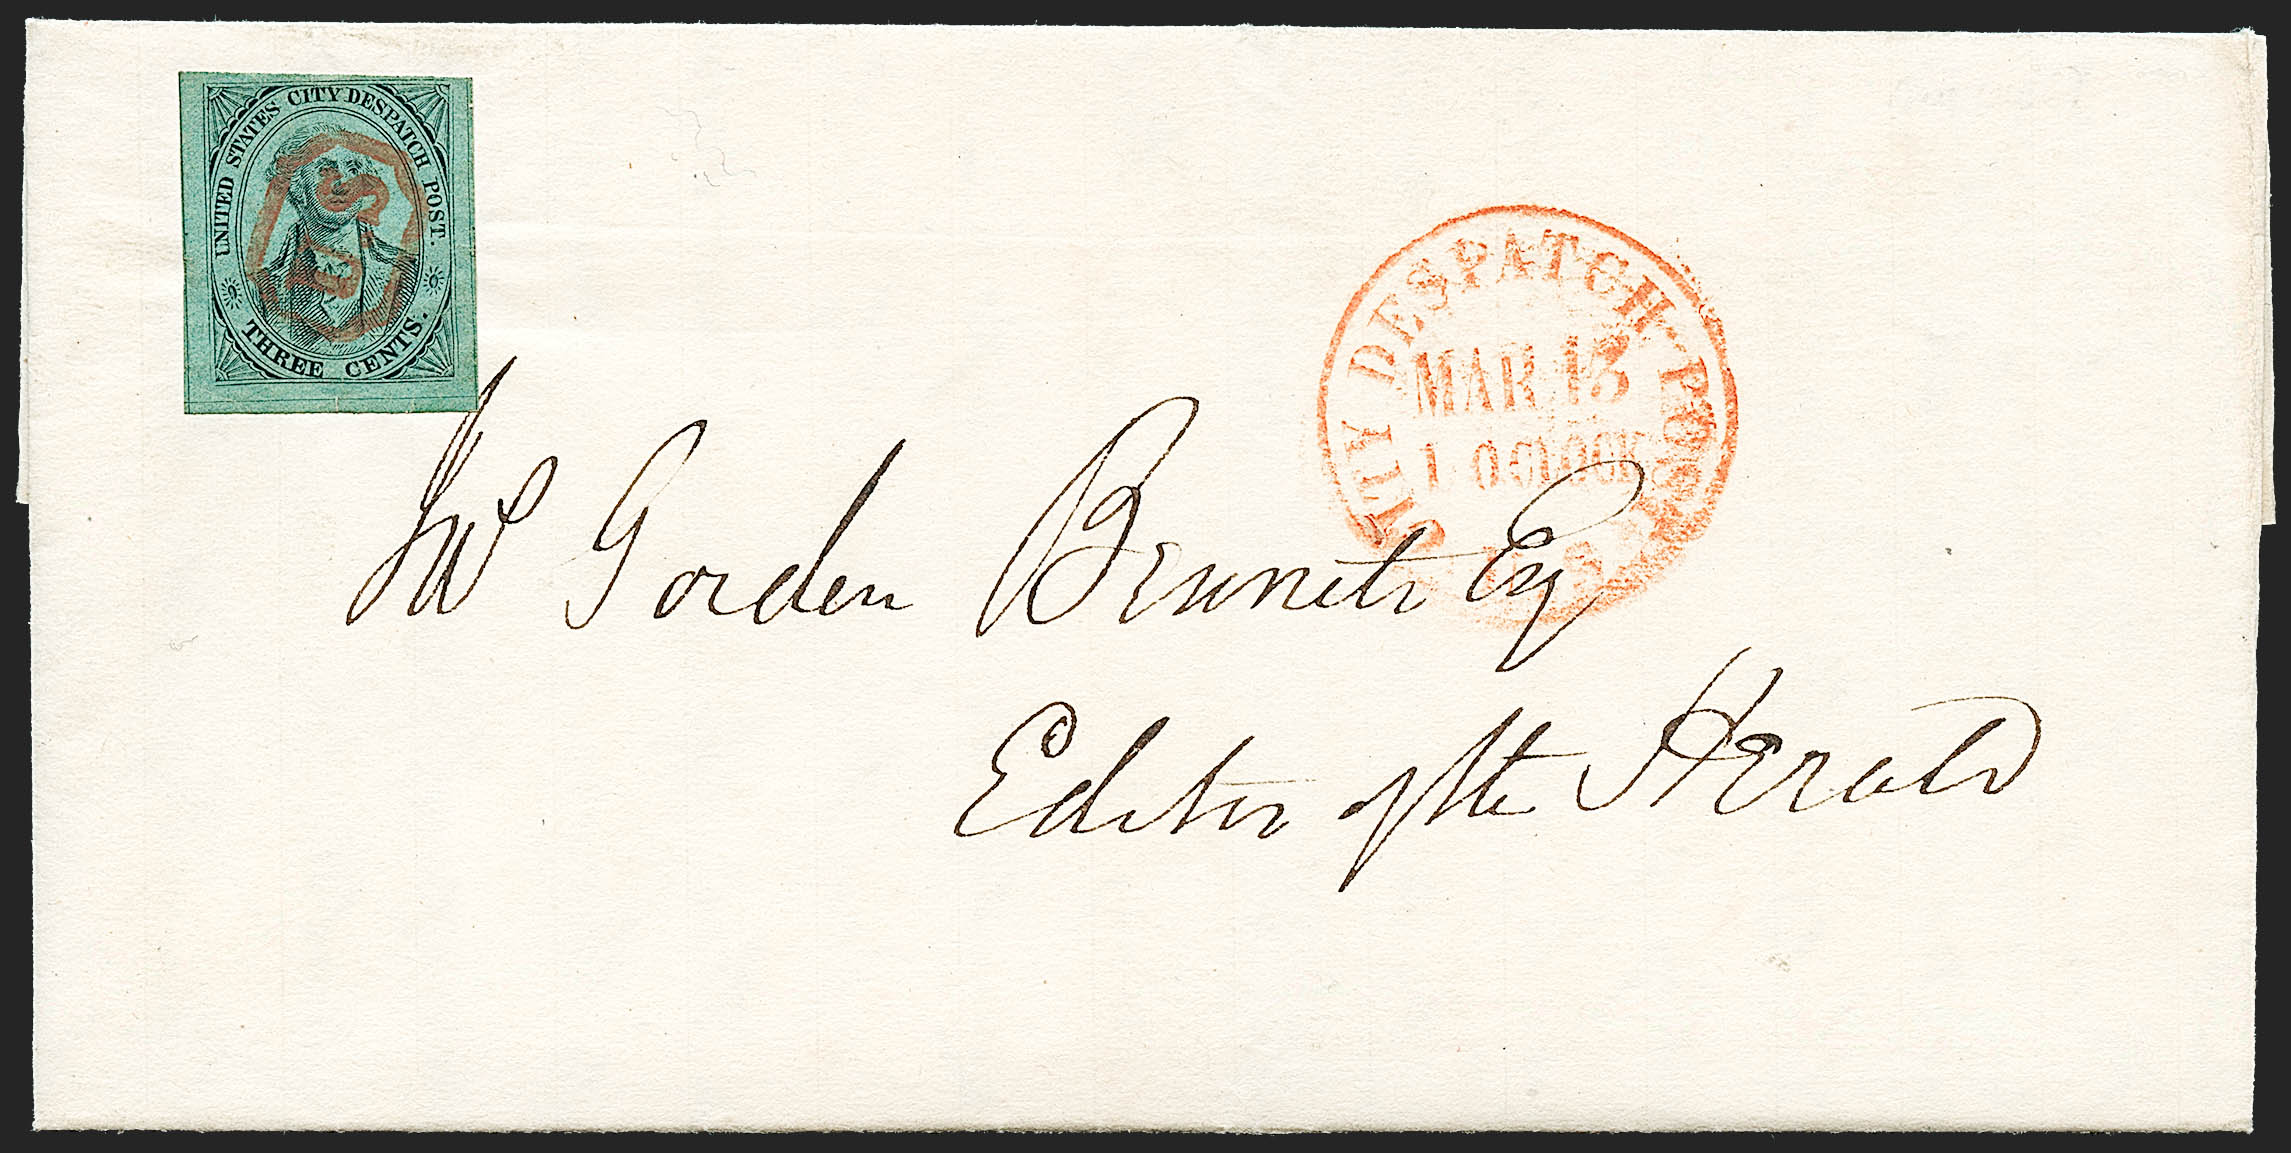 UNITED STATES CITY DESPATCH POST.
THREE CENTS.
U S
CITY DESPATCH POST
MAR 13
1 O'CLOCK
U.S.
Mr Gorden Bennett Esq
Editor of the Herald